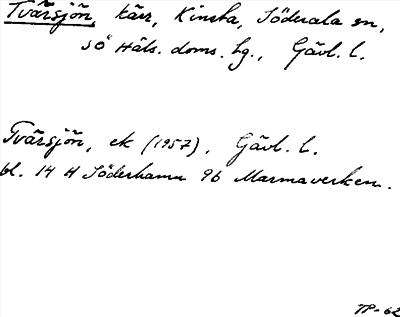 Tvärsjön, kärr, Kinsta, Söderala sn,
SÖ Häls. doms. hg., Gävl. l.
Tvärsjön, ek (1957), Gävl. l.
bl. 14 H Söderhamn 9b Marmaverken.
TP-62